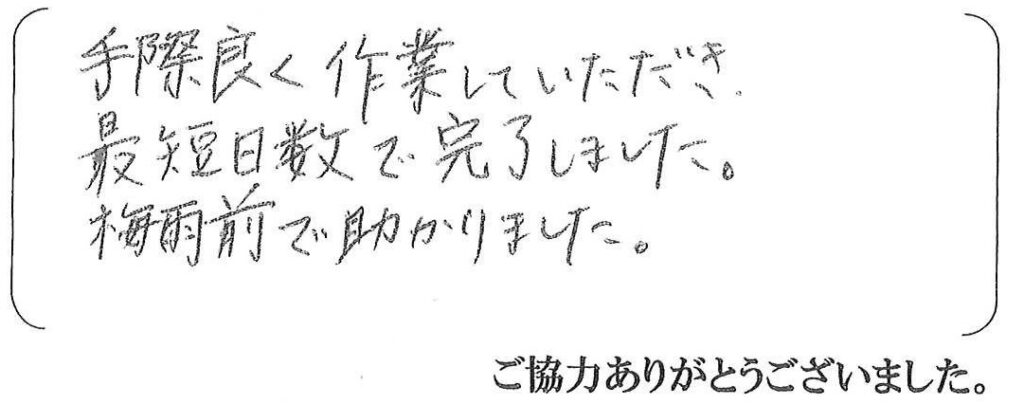 手際良く作業していただき、
最短日数で完了しました。
梅雨前で助かりました。
ご協力ありがとうございました。